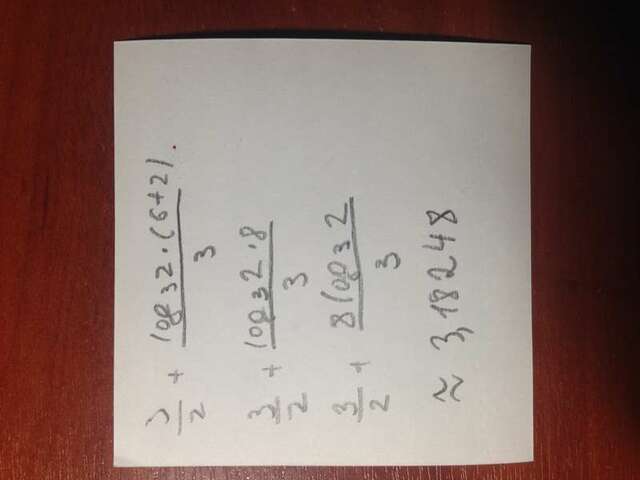 3/2 + log₃2·(6+2)/3.
3/2 + log₃2·8/3
3/2 + 8log₃2/3
≈ 3,18248